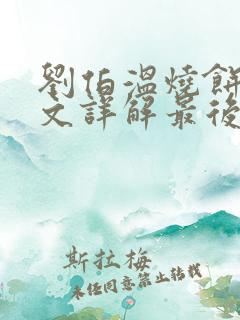 劉伯溫燒餅
文詳解最後
斯拉梅
未經同意禁止轉載